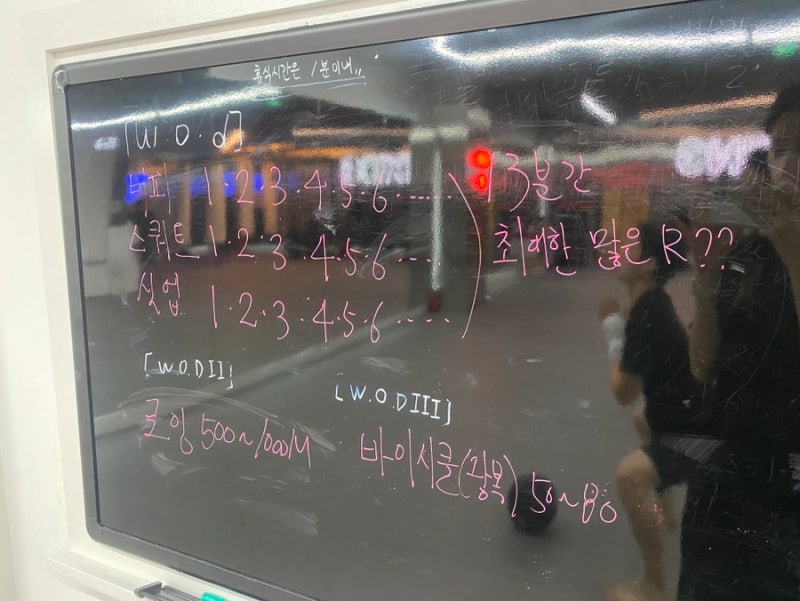 휴식시간은 1분이내,,
[W.O.d]
버피 1·2·3·4·5·6·.....
스쿼트 1·2·3·4·5·6····
싯업 1·2·3·4·5·6····
13분간
최대한 많은 R??
[W.O.DII]
로잉 500~1000M
[W.O.DIII]
바이시클(왕복) 50~80